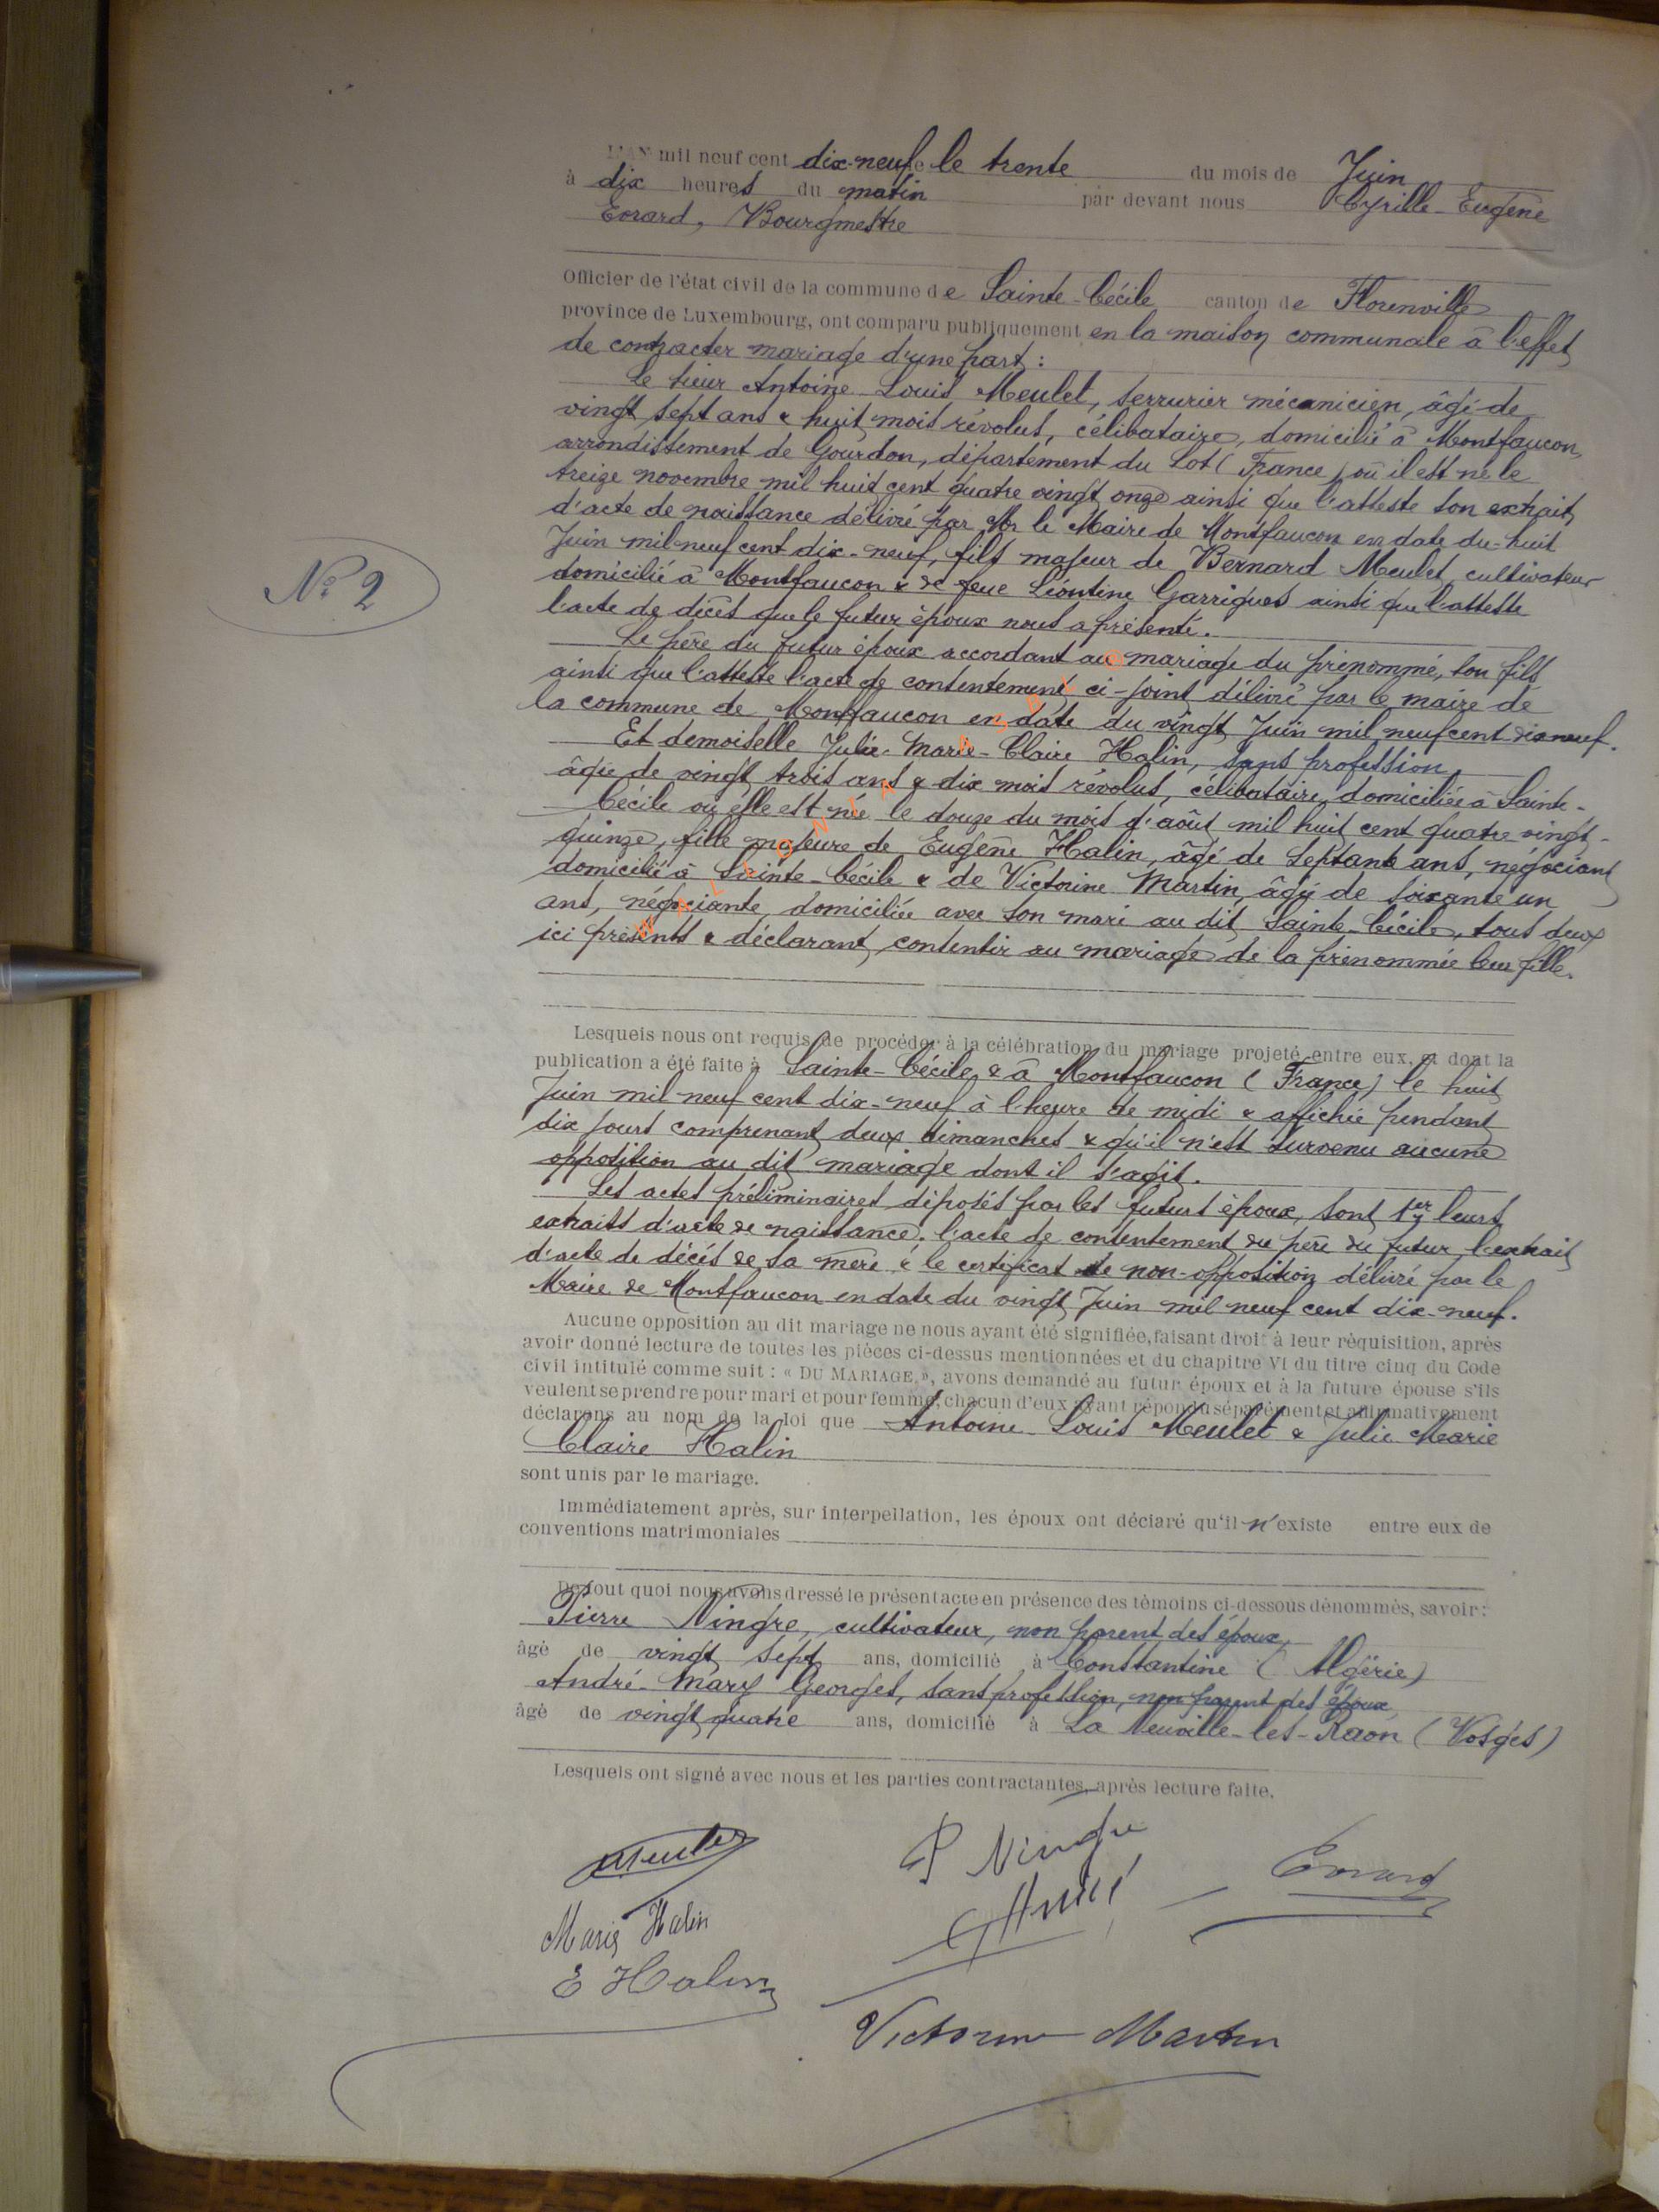 L'AN mil neuf cent dix-neuf le trente du mois de Juin
à dix heures du matin par devant nous Cyrille-Eugène
Evrard, Bourgmestre
Officier de l'état civil de la commune de Sainte-Cécile canton de Florenville
province de Luxembourg, ont comparu publiquement en la maison communale à l'effet
de contracter mariage d'une part :
Le sieur Antoine Louis Meulet, serrurier mécanicien, âgé de
vingt sept ans & huit mois révolus, célibataire, domicilié à Montfaucon,
arrondissement de Gourdon, département du Lot (France) où il est né le
treize novembre mil huit cent quatre vingt onze ainsi que l'atteste son extrait
d'acte de naissance délivré par Mr le Maire de Montfaucon en date du huit
Juin mil neuf cent dix-neuf, fils majeur de Bernard Meulet cultivateur
domicilié à Montfaucon & de feue Léontine Garrigues ainsi que l'atteste
l'acte de décès que le futur époux nous a présenté.
N° 2
Le père du futur époux accordant au mariage du prénommé, son fils
ainsi que l'atteste l'acte de consentement ci-joint délivré par le maire de
la commune de Montfaucon en date du vingt Juin mil neuf cent dix neuf.
Et demoiselle Julie-Marie-Claire Halin, sans profession,
âgée de vingt trois ans & dix mois révolus, célibataire, domiciliée à Sainte-
Cécile où elle est née le douze du mois d'août mil huit cent quatre vingt-
quinze, fille majeure de Eugène Halin, âgé de septante ans, négociant
domicilié à Sainte-Cécile & de Victorine Martin, âgée de soixante un
ans, négociante, domiciliée avec son mari au dit Sainte-Cécile, tous deux
ici présents & déclarant consentir au mariage de la prénommée leur fille.
Lesquels nous ont requis de procéder à la célébration du mariage projeté entre eux, et dont la
publication a été faite à Sainte-Cécile & à Montfaucon (France) le huit
Juin mil neuf cent dix-neuf à l'heure de midi & affichée pendant
dix jours comprenant deux dimanches & qu'il n'est survenu aucune
opposition au dit mariage dont il s'agit.
Les actes préliminaires déposés par les futurs époux, sont 1er leurs
extraits d'acte de naissance, l'acte de consentement du père du futur, l'extrait
d'acte de décès de sa mère & le certificat de non-opposition délivré par le
Maire de Montfaucon en date du vingt Juin mil neuf cent dix-neuf.
Aucune opposition au dit mariage ne nous ayant été signifiée, faisant droit à leur réquisition, après
avoir donné lecture de toutes les pièces ci-dessus mentionnées et du chapitre VI du titre cinq du Code
civil intitulé comme suit : « DU MARIAGE, », avons demandé au futur époux et à la future épouse s'ils
veulent se prendre pour mari et pour femme, chacun d'eux ayant répondu séparément et affirmativement
déclarons au nom de la loi que Antoine Louis Meulet & Julie Marie
Claire Halin
sont unis par le mariage.
Immédiatement après, sur interpellation, les époux ont déclaré qu'il n'existe entre eux de
conventions matrimoniales
De tout quoi nous avons dressé le présent acte en présence des témoins ci-dessous dénommés, savoir :
Pierre Ningre, cultivateur, non parent des époux,
âgé de vingt sept ans, domicilié à Constantine (Algérie)
André-Mary Georges, sans profession, non parent des époux,
âgé de vingt quatre ans, domicilié à La Neuville-les-Raon (Vosges)
Lesquels ont signé avec nous et les parties contractantes, après lecture faite.
Meulet
P Ningre
Evrard
André
Marie Halin
E Halin
Victorine Martin